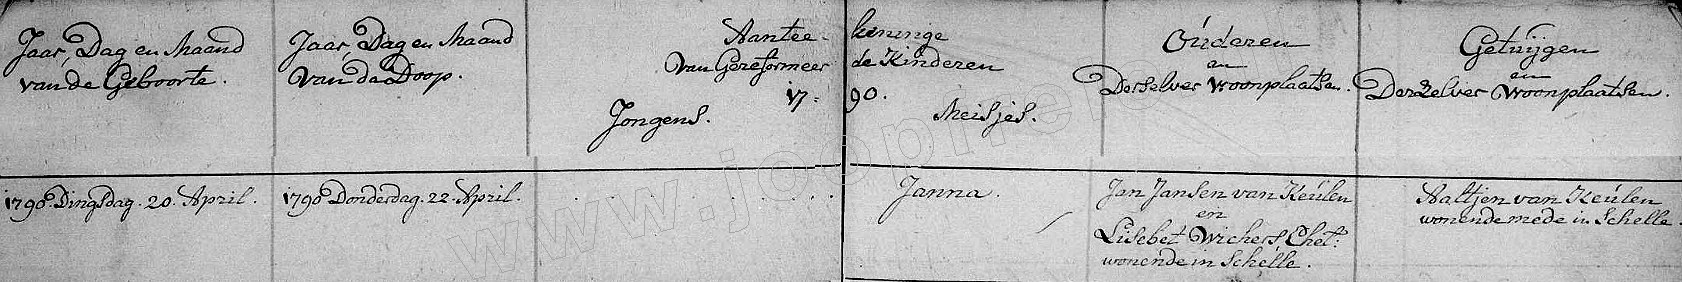 Jaar, Dag en Maand
van de Geboorte.
Jaar, Dag en Maand
van da Doop.
Aantee-
van Gereformeer
17=
Jongens.
keninge
de Kinderen
90.
Meisjes.
Ouderen
en
Derselver woonplaatsen.
Getuijgen
en
Derzelver woonplaatsen.
1790. Dingsdag. 20. April.
1790 Donderdag. 22. April.
Janna.
Jan Jansen van Keulen
en
Lisebet Wichers Ehel:
wonende in Schelle.
Aaltjen van Keulen
wonende mede in Schelle.